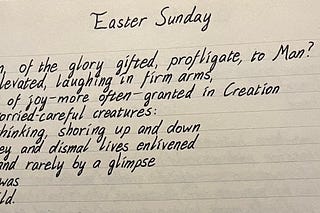 Easter Sunday
, of the glory gifted, profligate, to Man?
levated, laughing in firm arms,
of joy-more often-granted in Creation
orried-careful creatures:
hinking, shoring up and down
ey and dismal lives enlivened
and rarely by a glimpse
was
ld.